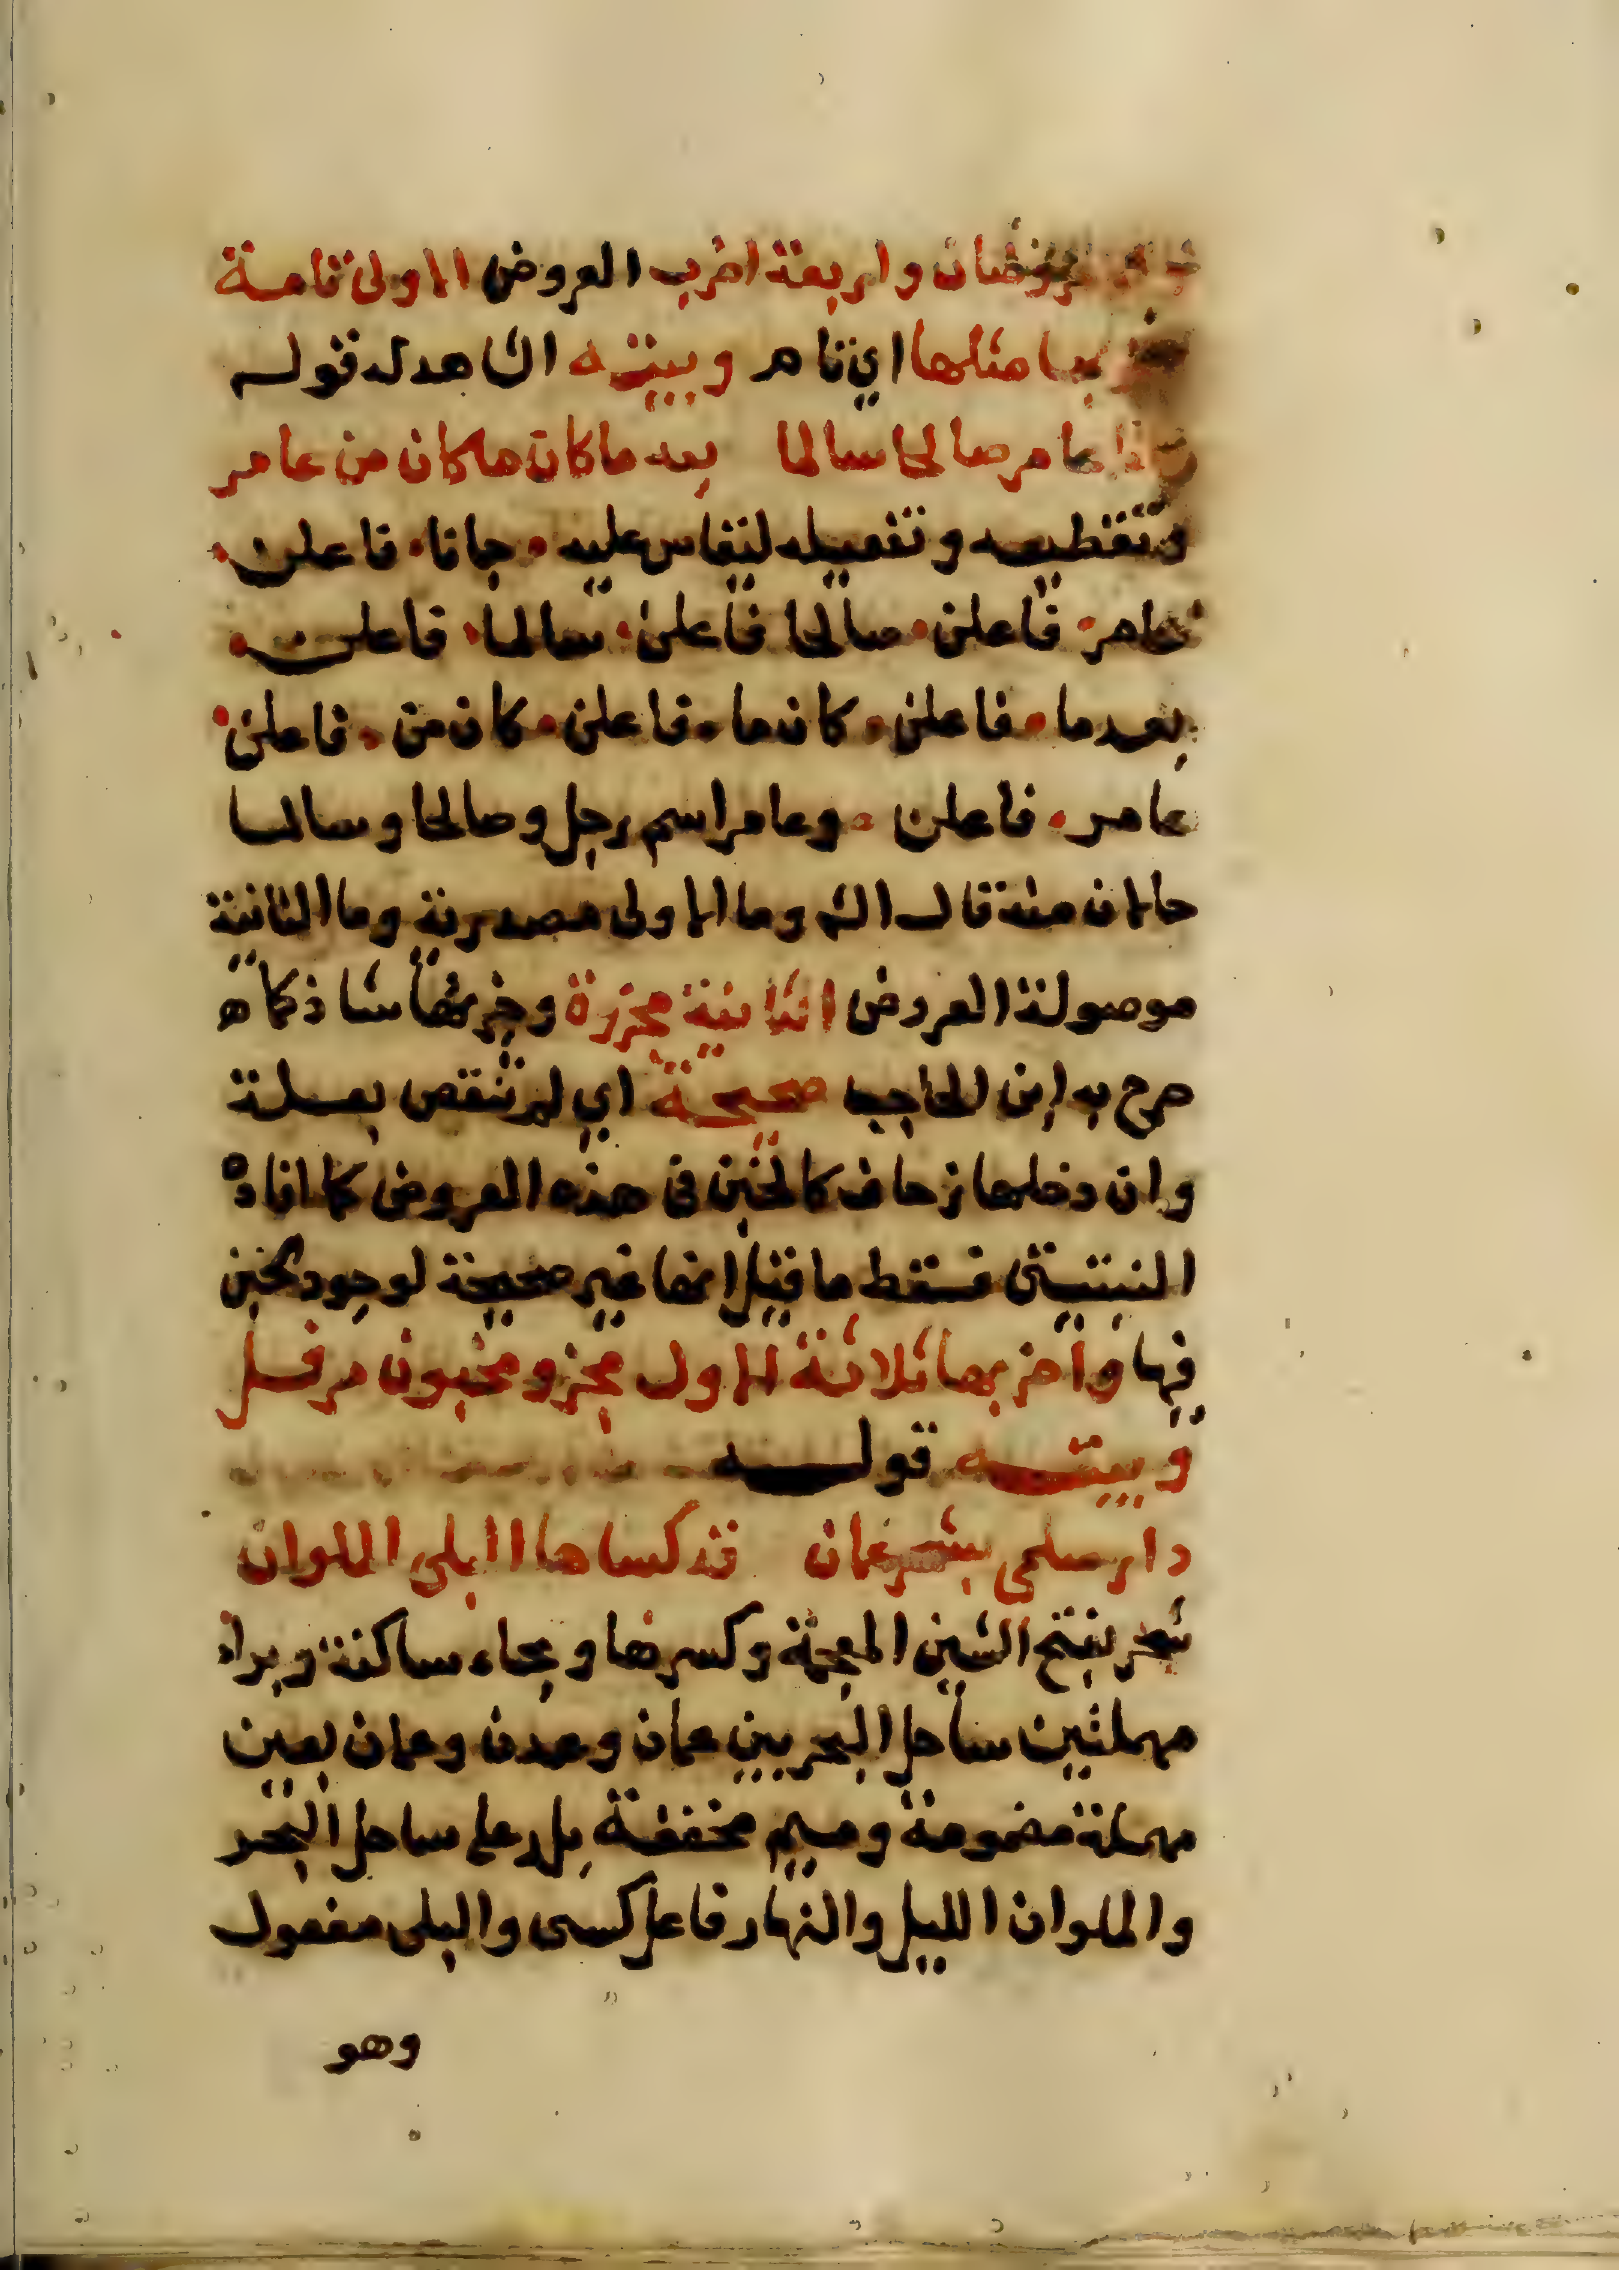 عروضان واربعة اضرب العروض الاولى تامة
ضربها مثلها اي تام وبيته الشاهد له قوله
جاءنا عامر صالحا سالما بعد ما كان ما كان من عامر
وتقطيعه وتفعيله ليقاس عليه جانا فاعلن
عامر فاعلن صالحا فاعلن سالما فاعلن
بعد ما فاعلن كان ما فاعلن كان من فاعلن
عامر فاعلن وعامر اسم رجل وصالحا وسالما
حالان منه قال الش وما الاولى مصدرية وما الثانية
موصولة العروض الثانية مجزوة وجزئها شاذ كما
صرح به ابن الحاجب صحيحة اي لم تنقص بعلة
وان دخلها زحاف كالخبن في هذه العروض كما افاده
النبتيتي فسقط ما قيل انها غير صحيحة لوجود الخبن
فيها واضربها ثلاثة الاول مجزو مخبون مرفل
وبيته قوله
دار سلمى بشحر عمان قد كساها البلى الملوان
شحر بفتح الشين المعجمة وكسرها وبحاء ساكنة وبراء
مهملتين ساحل البحر بين عمان وعدن وعمان بعين
مهملة مضمومة وميم مخففة بلد على ساحل البحر
والملوان الليل والنهار فاعل كسى والبلى مفعول
وهو